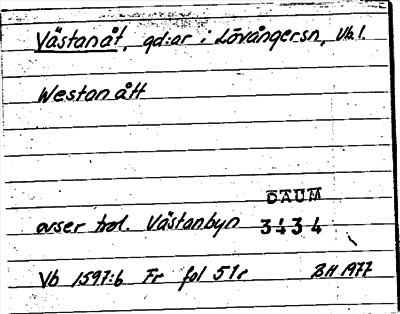 Västanåt, gd:ar i Lövångersn, Vb.l.
Westanått
DAUM
avser trol. Västanbyn 3434
Vb 1597:6 Fr fol 51r BH 1977